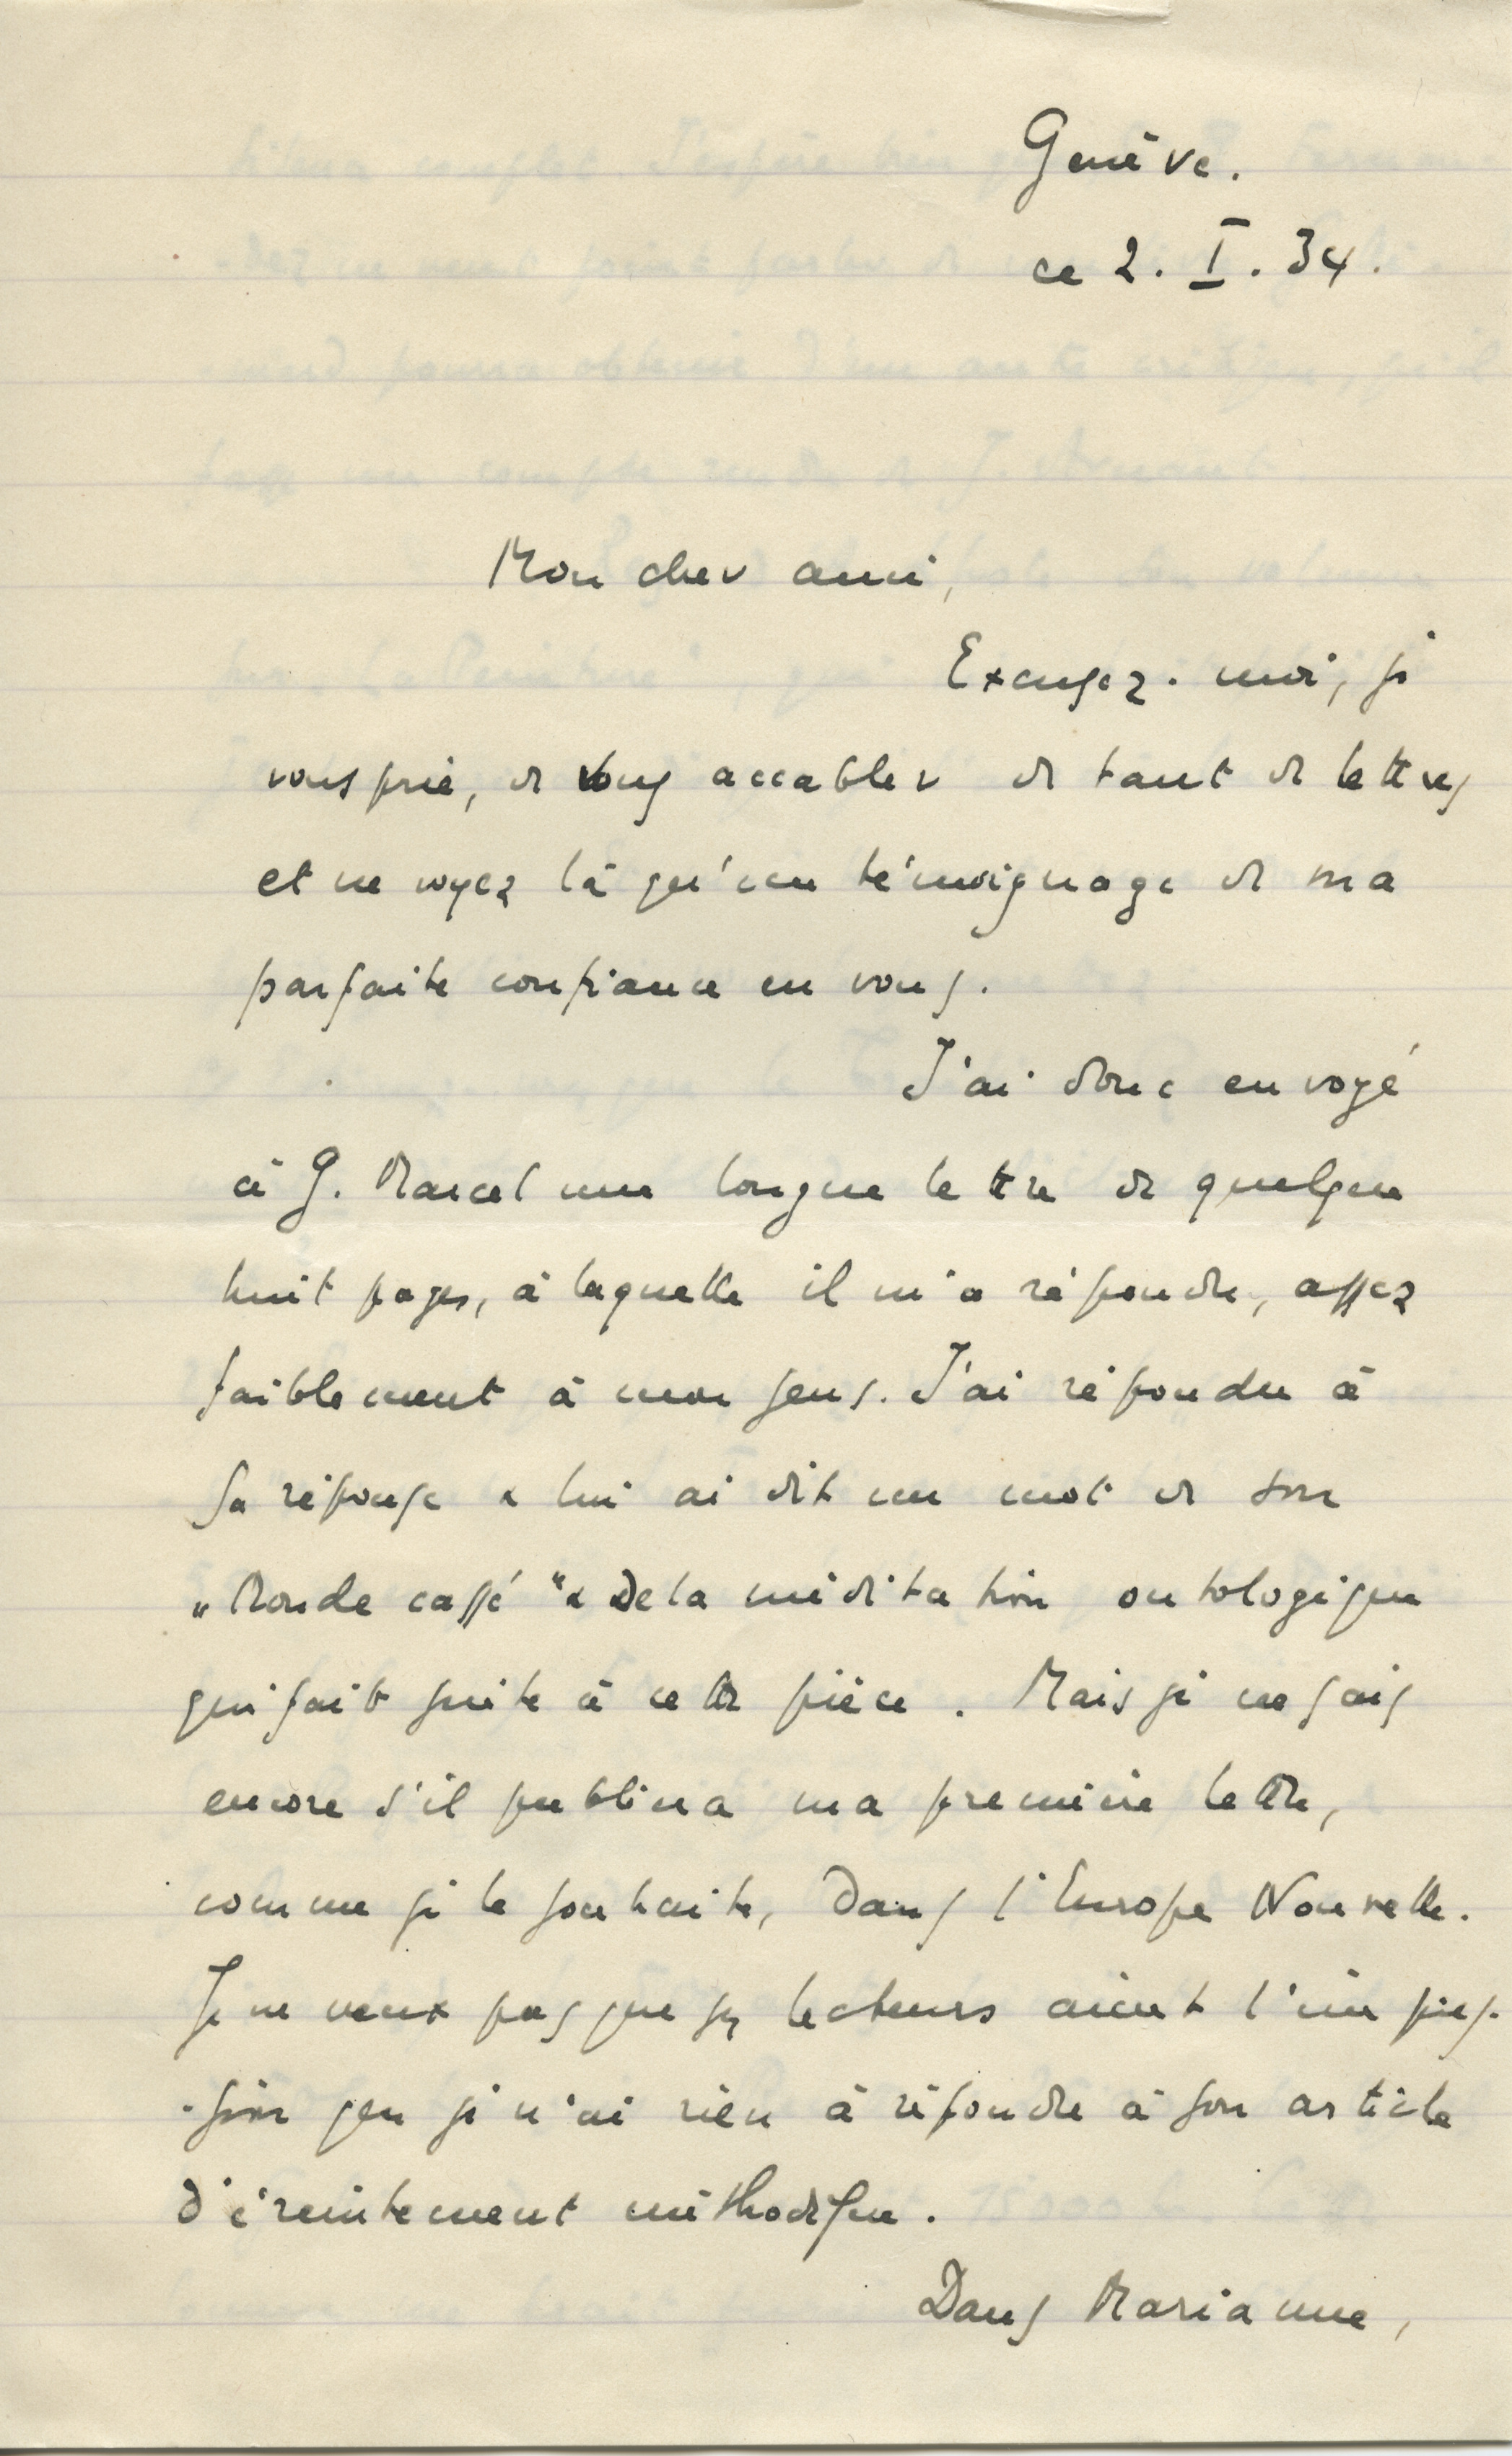 Genève.
ce 2. I. 34.
Mon cher ami,
Excusez-moi, je
vous prie, de vous accabler de tant de lettres
et ne voyez là qu'un témoignage de ma
parfaite confiance en vous.
J'ai donc envoyé
à G. Marcel une longue lettre de quelque
huit pages, à laquelle il m'a répondu, assez
faiblement à mon sens. J'ai répondu à
sa réponse & lui ai dit un mot de son
„Monde cassé" & de la méditation ontologique
qui fait suite à cette pièce. Mais je ne sais
encore s'il publiera ma première lettre,
comme je le souhaite, dans l'Europe Nouvelle.
Je ne veux pas que ses lecteurs aient l'impres-
-sion que je n'ai rien à répondre à son article
d'éreintement méthodique.
Dans Marianne,